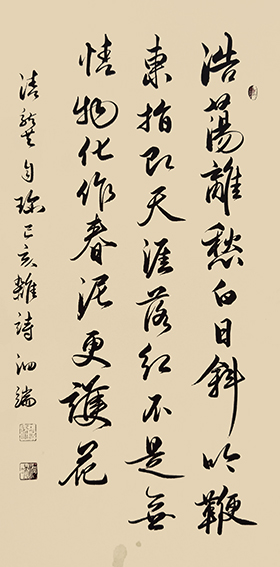 浩荡離愁白日斜吟鞭
東指即天涯落红不是無
情物化作春泥更護花
清龔自珍己亥雜诗 泗端